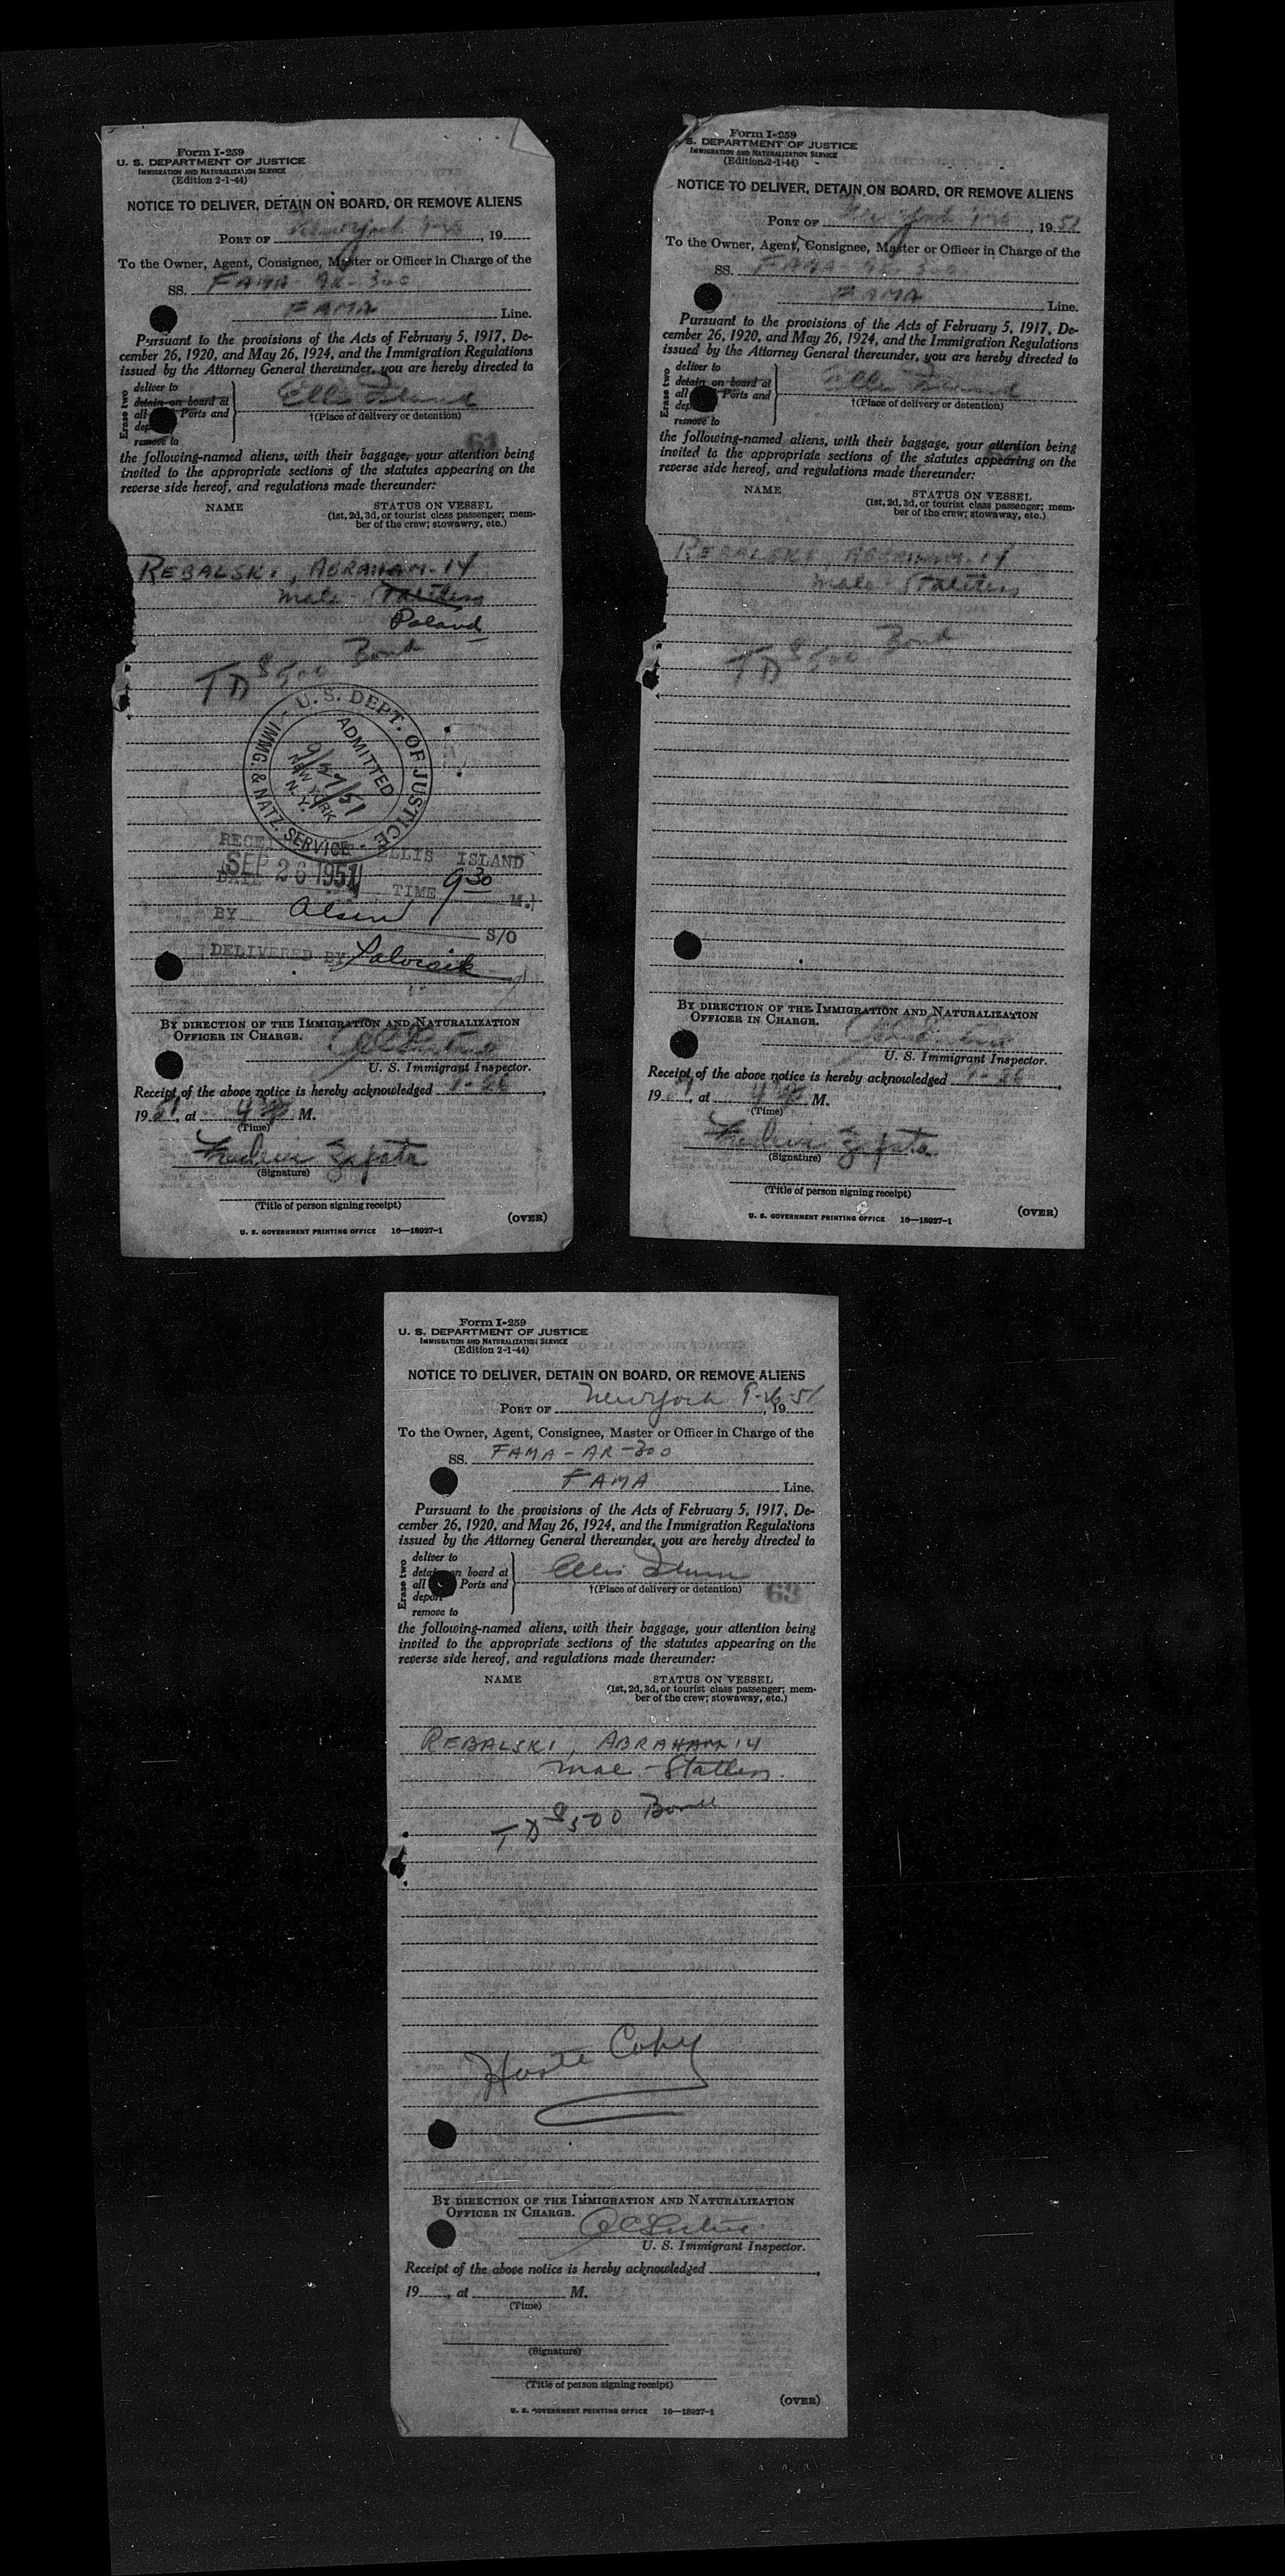 Form I-259
U. S. DEPARTMENT OF JUSTICE
IMMIGRATION AND NATURALIZATION SERVICE
(Edition 2-1-44)
NOTICE TO DELIVER, DETAIN ON BOARD, OR REMOVE ALIENS
PORT OF New York 9-26, 19
To the Owner, Agent, Consignee, Master or Officer in Charge of the
SS. FAMA - AR - 300
FAMA Line.
Pursuant to the provisions of the Acts of February 5, 1917, De-
cember 26, 1920, and May 26, 1924, and the Immigration Regulations
issued by the Attorney General thereunder, you are hereby directed to
Erase two
deliver to
detain on board at
all Ports and
remove to
Ellis Island
†(Place of delivery or detention)
61
the following-named aliens, with their baggage, your attention being
invited to the appropriate sections of the statutes appearing on the
reverse side hereof, and regulations made thereunder:
NAME STATUS ON VESSEL
(1st, 2d, 3d, or tourist class passenger; mem-
ber of the crew; stowaway, etc.)
REBALSKI, ABRAHAM - 14
male - Stateless
Poland
TD $500 Bond
U. S. DEPT. OF JUSTICE
IMMG. & NATZ. SERVICE
ADMITTED
9/27/51
NEW YORK
N. Y.
ELLIS ISLAND
DATE SEP 26 1951 TIME 9 30 M.)
BY Olsen
S/O
DELIVERED BY
BY DIRECTION OF THE IMMIGRATION AND NATURALIZATION
OFFICER IN CHARGE.
U. S. Immigrant Inspector.
Receipt of the above notice is hereby acknowledged 9-26,
1951, at M.
(Time)
Zapata
(Signature)
(Title of person signing receipt)
(OVER)
U. S. GOVERNMENT PRINTING OFFICE 16—18027-1
Form I-259
S. DEPARTMENT OF JUSTICE
IMMIGRATION AND NATURALIZATION SERVICE
(Edition 2-1-44)
NOTICE TO DELIVER, DETAIN ON BOARD, OR REMOVE ALIENS
PORT OF New York 9-26, 1951
To the Owner, Agent, Consignee, Master or Officer in Charge of the
SS. FAMA - AR - 300
FAMA Line.
Pursuant to the provisions of the Acts of February 5, 1917, De-
cember 26, 1920, and May 26, 1924, and the Immigration Regulations
issued by the Attorney General thereunder, you are hereby directed to
Erase two
deliver to
detain on board at
all Ports and
remove to
Ellis Island
†(Place of delivery or detention)
the following-named aliens, with their baggage, your attention being
invited to the appropriate sections of the statutes appearing on the
reverse side hereof, and regulations made thereunder:
NAME STATUS ON VESSEL
(1st, 2d, 3d, or tourist class passenger; mem-
ber of the crew; stowaway, etc.)
REBALSKI ABRAHAM - 14
male - Stateless
TD $500 Bond
BY DIRECTION OF THE IMMIGRATION AND NATURALIZATION
OFFICER IN CHARGE.
U. S. Immigrant Inspector.
Receipt of the above notice is hereby acknowledged 9-26,
19 , at M.
(Time)
Zapata
(Signature)
(Title of person signing receipt)
(OVER)
U. S. GOVERNMENT PRINTING OFFICE 16—18027-1
Form I-259
U. S. DEPARTMENT OF JUSTICE
IMMIGRATION AND NATURALIZATION SERVICE
(Edition 2-1-44)
NOTICE TO DELIVER, DETAIN ON BOARD, OR REMOVE ALIENS
PORT OF New York 9-26-51, 19
To the Owner, Agent, Consignee, Master or Officer in Charge of the
SS. FAMA - AR - 300
FAMA Line.
Pursuant to the provisions of the Acts of February 5, 1917, De-
cember 26, 1920, and May 26, 1924, and the Immigration Regulations
issued by the Attorney General thereunder, you are hereby directed to
Erase two
deliver to
detain on board at
all Ports and
deport
remove to
Ellis Island
†(Place of delivery or detention)
63
the following-named aliens, with their baggage, your attention being
invited to the appropriate sections of the statutes appearing on the
reverse side hereof, and regulations made thereunder:
NAME STATUS ON VESSEL
(1st, 2d, 3d, or tourist class passenger; mem-
ber of the crew; stowaway, etc.)
REBALSKI, ABRAHAM 14
male - Stateless.
TD $500 Bond
Copy
BY DIRECTION OF THE IMMIGRATION AND NATURALIZATION
OFFICER IN CHARGE.
U. S. Immigrant Inspector.
Receipt of the above notice is hereby acknowledged ,
19 , at M.
(Time)
(Signature)
(Title of person signing receipt)
(OVER)
U. S. GOVERNMENT PRINTING OFFICE 16—18027-1